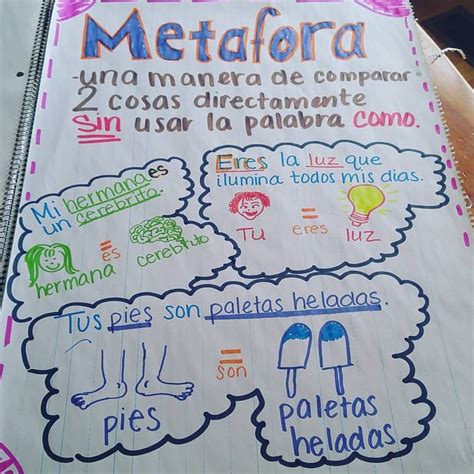 Metafora
-una manera de comparar
2 cosas directamente
sin usar la palabra como.
Mi hermana es
un cerebrito.
es
hermana
cerebrito
Eres la luz que
ilumina todos mis dias.
=
Tu eres luz
Tus pies son paletas heladas.
=
son
pies
paletas
heladas